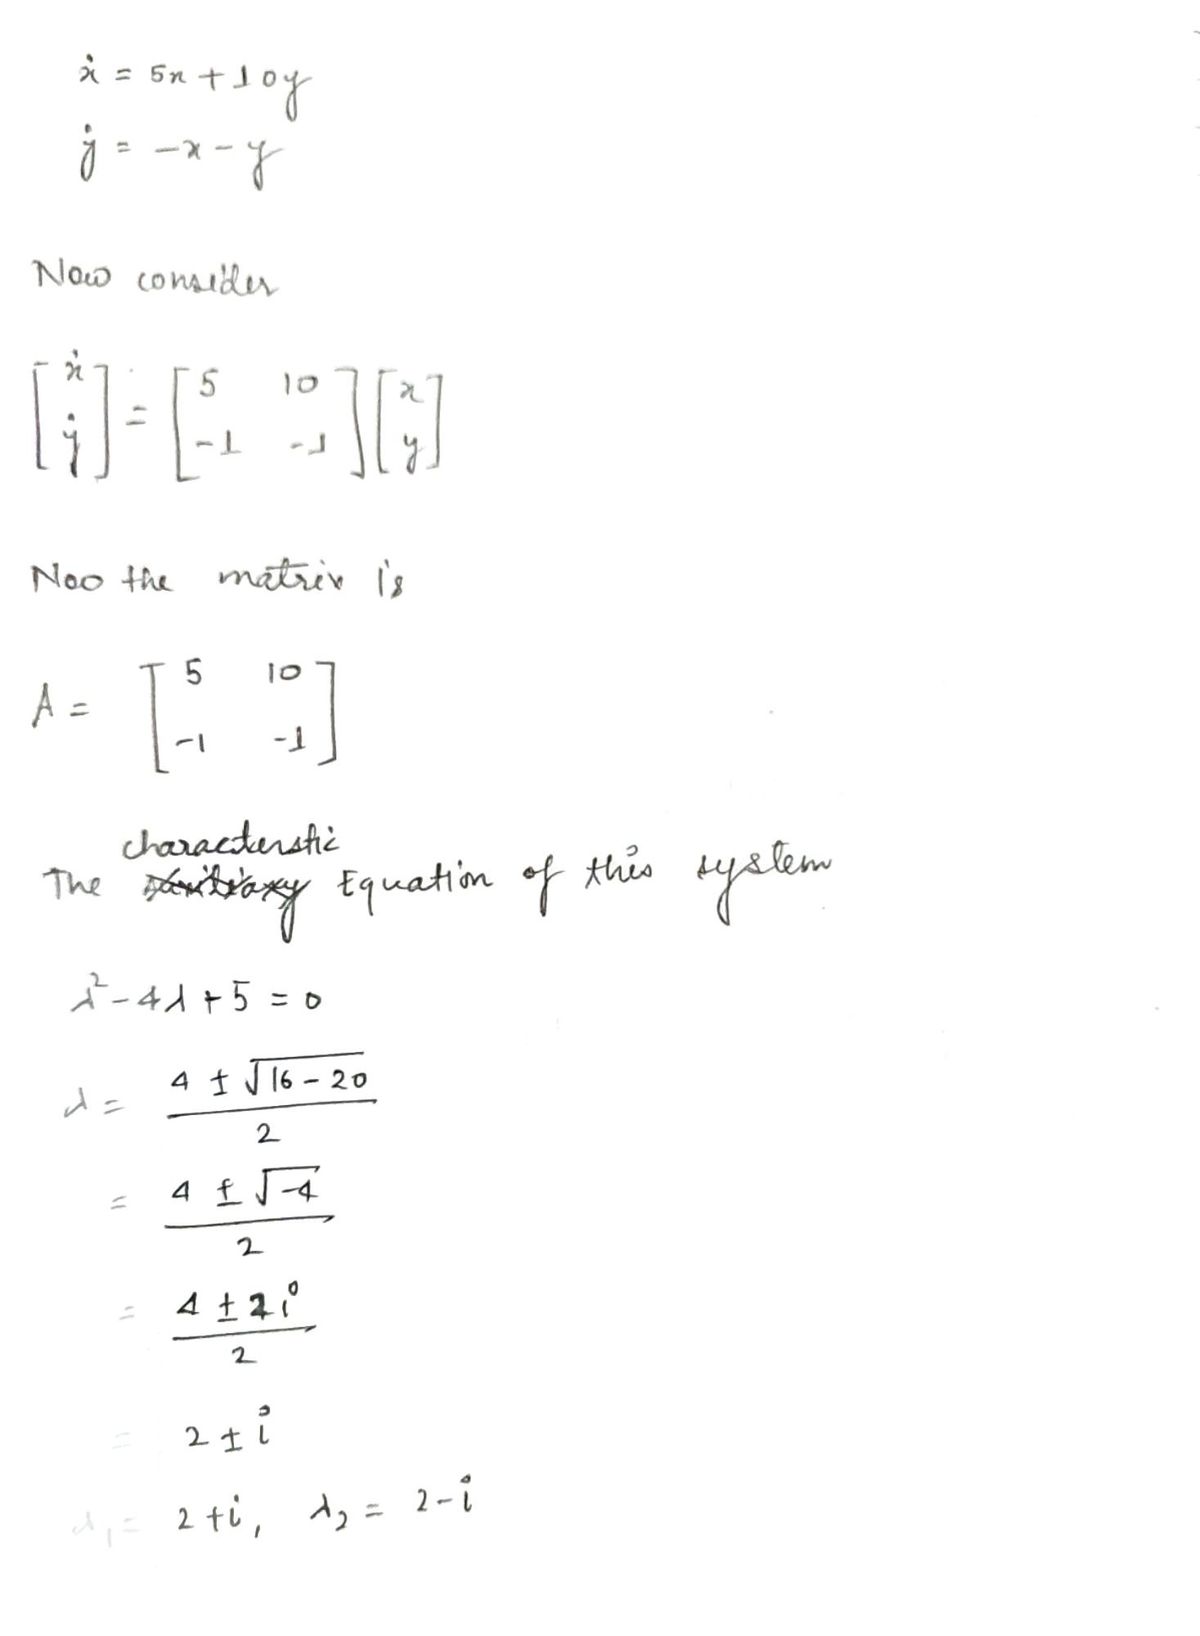 ẋ = 5x + 10y
ẏ = -x - y
Now consider
[ẋ ẏ] = [5 10 -1 -1] [x y]
Now the matrix is
A = [5 10 -1 -1]
characterstic
The Equation of this system
λ² - 4λ + 5 = 0
λ = 4 ± √16 - 20 / 2
= 4 ± √-4 / 2
= 4 ± 2i / 2
= 2 ± i
λ₁ = 2 + i, λ₂ = 2 - i